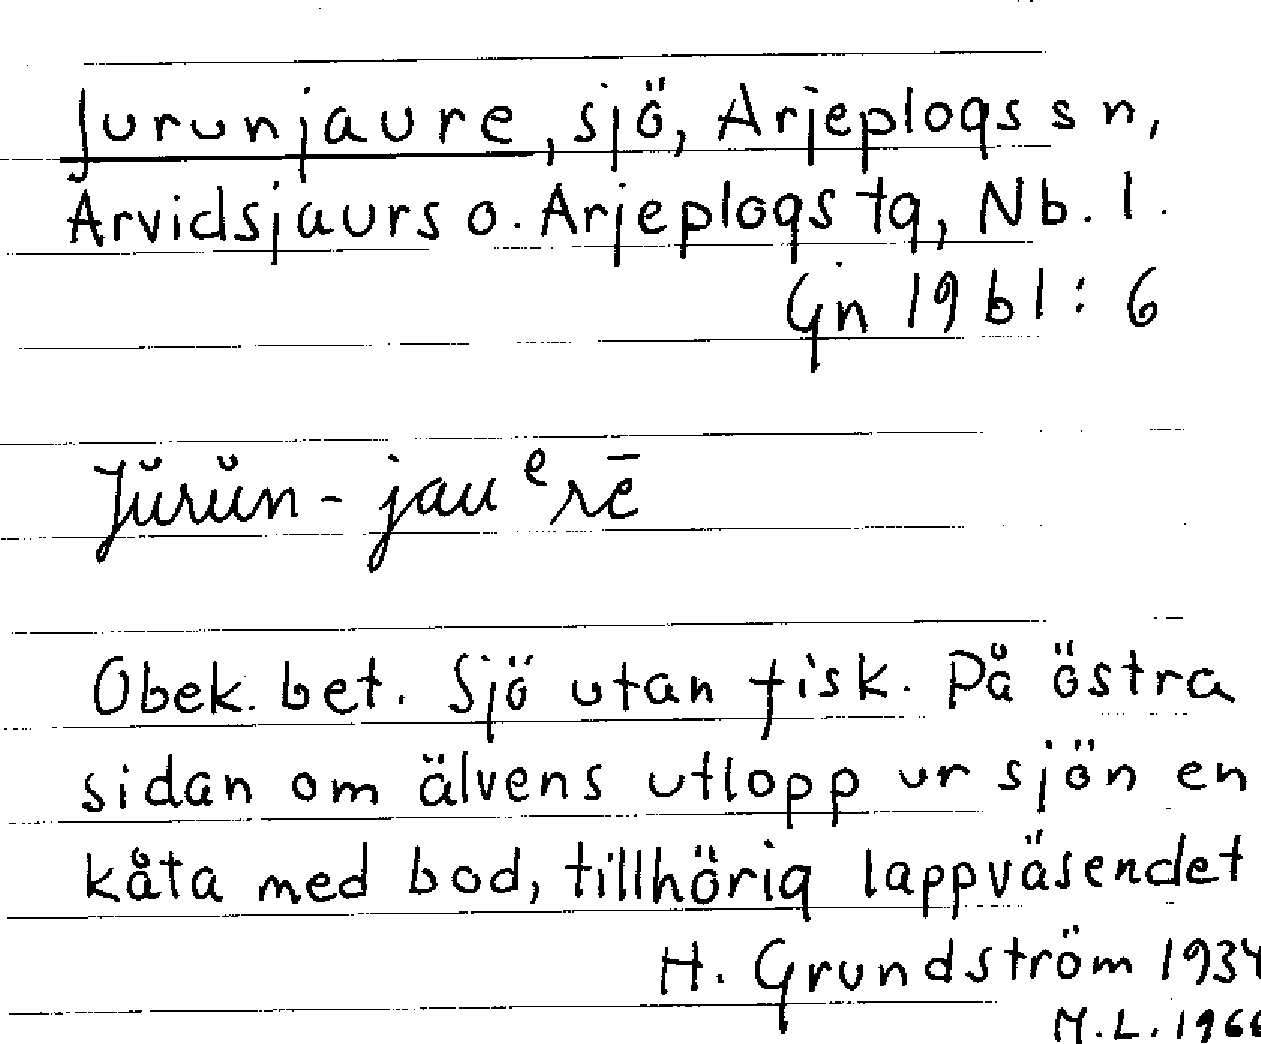 Jurunjaure, sjö, Arjeplogs sn,
Arvidsjaurs o. Arjeplogs tg, Nb. l.
Gn 1961: 6
Jŭrŭn-jauᵉrē
Obek. bet. Sjö utan fisk. På östra
sidan om älvens utlopp ur sjön en
kåta med bod, tillhörig lappväsendet
H. Grundström 1934
M.L. 1966